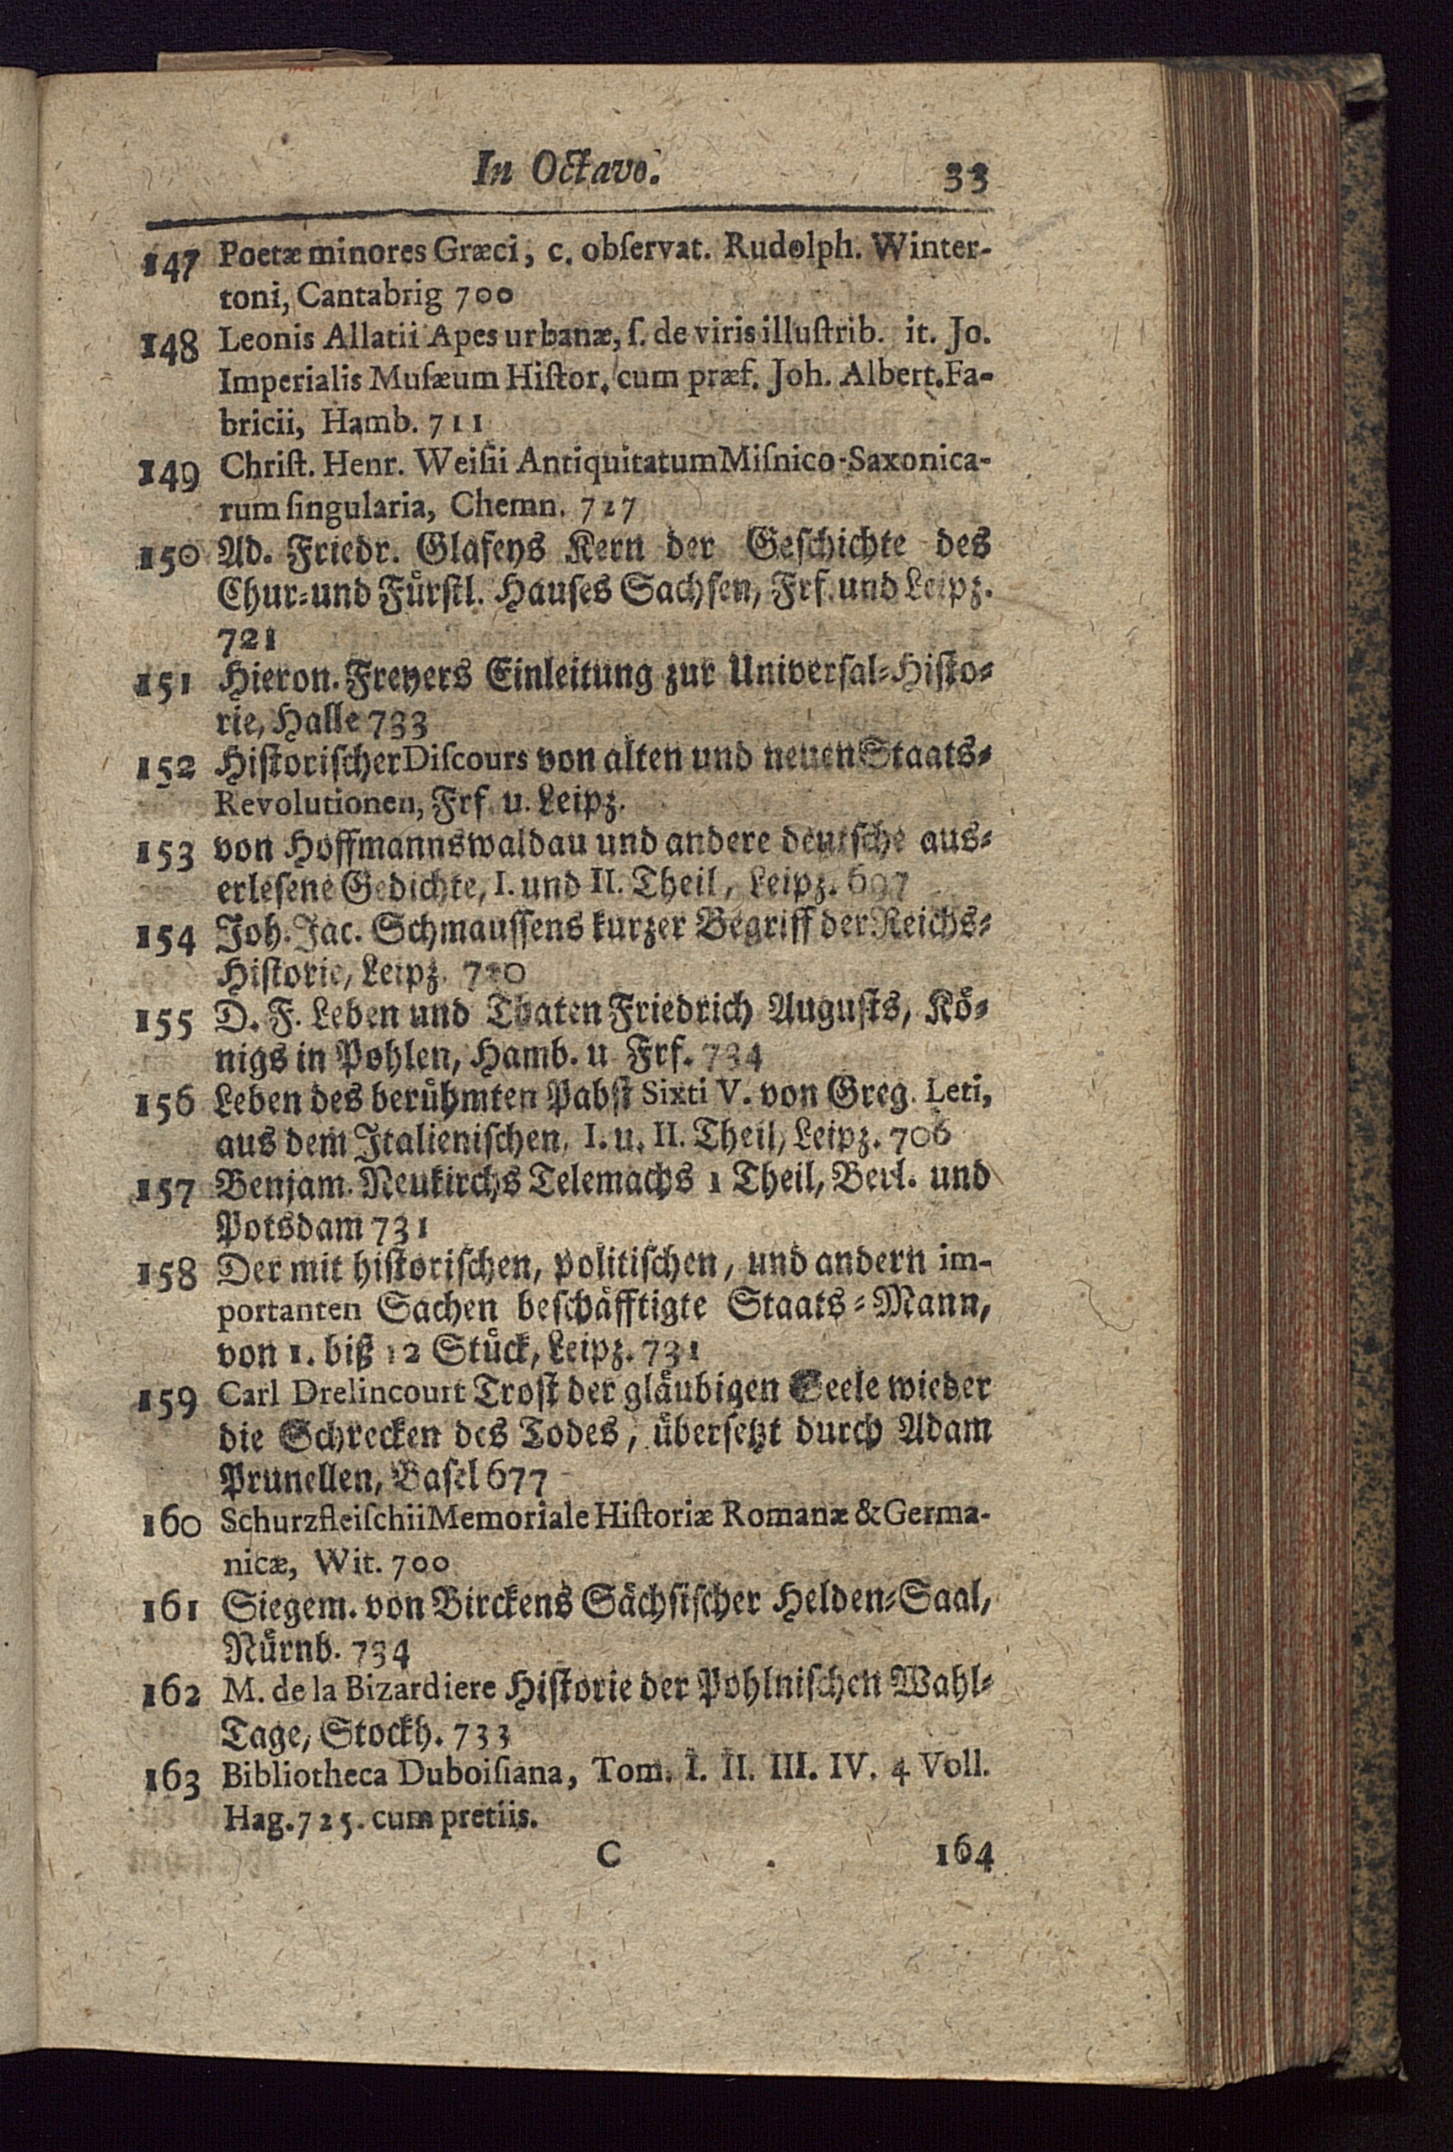 In Octavo. 33
147 Poetæ minores Græci, c. obſervat. Rudolph. Winter-
toni, Cantabrig 700
148 Leonis Allatii Apes urbanæ, ſ. de viris illuſtrib. it. Jo.
Imperialis Muſæum Hiſtor. cum præf. Joh. Albert. Fa-
bricii, Hamb. 711
149 Chriſt. Henr. Weiſii Antiquitatum Miſnico-Saxonica-
rum ſingularia, Chemn. 727
150 Ad. Friedr. Glafeys Kern der Geſchichte des
Chur-und Fürſtl. Hauſes Sachſen, Frf. und Leipz.
721
151 Hieron. Freyers Einleitung zur Univerſal-Hiſto-
rie, Halle 733
152 Hiſtoriſcher Diſcours von alten und neuen Staats-
Revolutionen, Frf. u. Leipz.
153 von Hoffmannswaldau und andere deutſche aus-
erleſene Gedichte, I. und II. Theil, Leipz. 697
154 Joh. Jac. Schmauſſens kurzer Begriff der Reichs-
Hiſtorie, Leipz. 720
155 D. F. Leben und Thaten Friedrich Auguſts, Kö-
nigs in Pohlen, Hamb. u Frf. 734
156 Leben des berühmten Pabſt Sixti V. von Greg. Leti,
aus dem Italieniſchen, I. u. II. Theil, Leipz. 706
157 Benjam. Neukirchs Telemachs 1 Theil, Berl. und
Potsdam 731
158 Der mit hiſtoriſchen, politiſchen, und andern im-
portanten Sachen beſchäfftigte Staats-Mann,
von 1. biß 12 Stück, Leipz. 731
159 Carl Drelincourt Troſt der gläubigen Seele wieder
die Schrecken des Todes, überſetzt durch Adam
Prunellen, Baſel 677
160 Schurzfleiſchii Memoriale Hiſtoriæ Romanæ & Germa-
nicæ, Wit. 700
161 Siegem. von Birckens Sächſiſcher Helden-Saal,
Nürnb. 734
162 M. de la Bizardiere Hiſtorie der Pohlniſchen Wahl-
Tage, Stockh. 733
163 Bibliotheca Duboiſiana, Tom. I. II. III. IV. 4 Voll.
Hag. 725. cum pretiis.
C 164